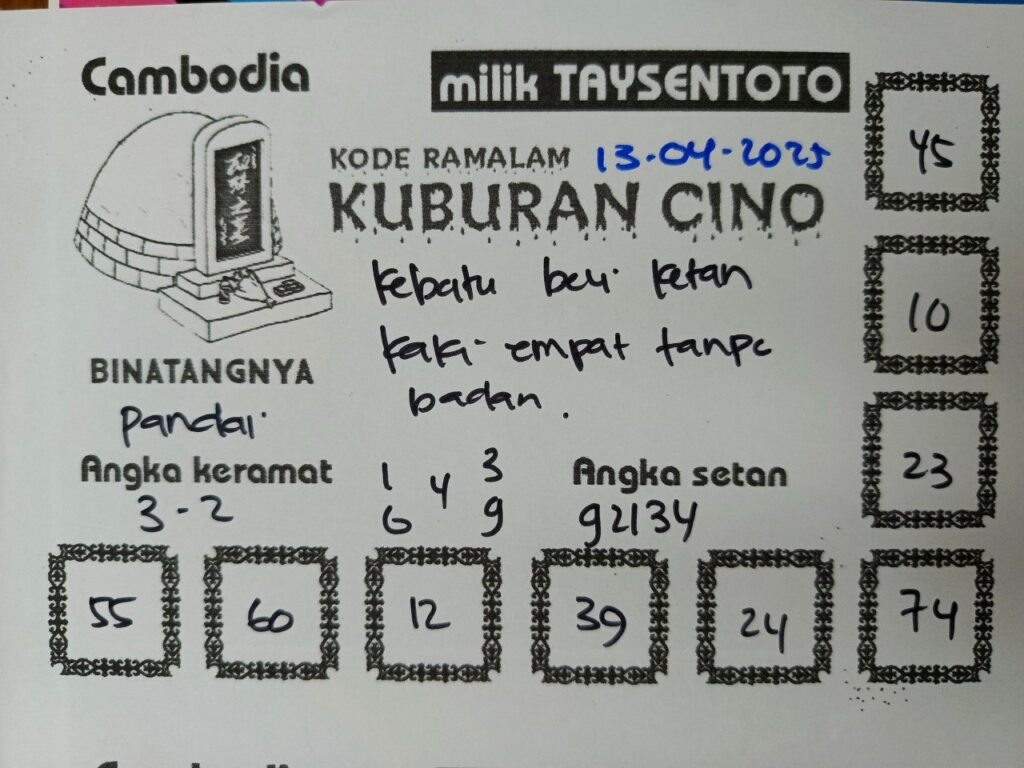 Cambodia
milik TAYSENTOTO
KODE RAMALAM 13-04-2025
KUBURAN CINO
Kebatu beli ketan
kaki empat tanpa
badan.
BINATANGNYA
pandai
Angka keramat
3-2
1 4 3
6 9
Angka setan
92134
45
10
23
55 60 12 39 24 74